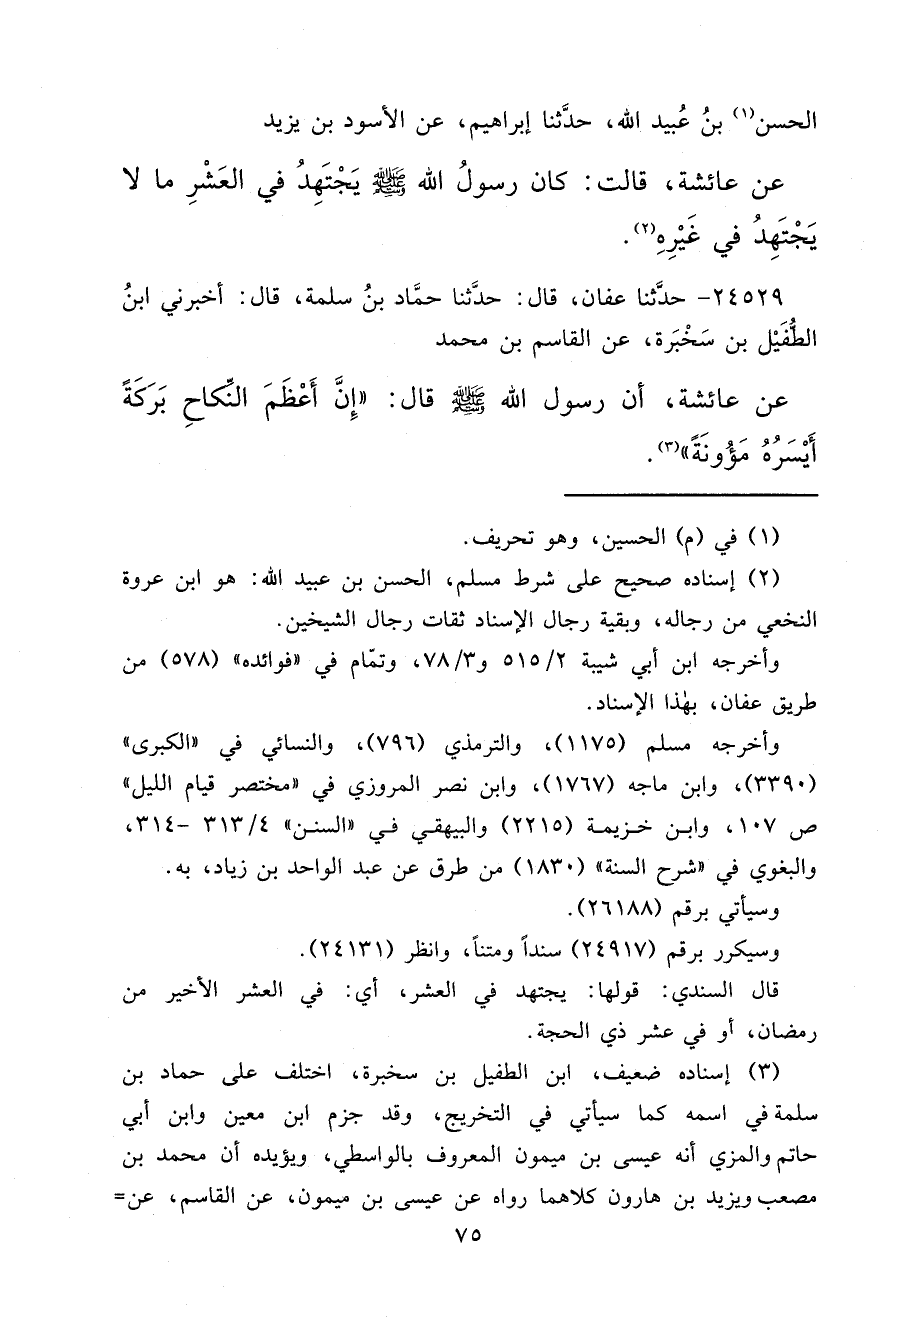 الحسن(١) بنُ عُبيد الله، حدَّثنا إبراهيم، عن الأسود بن يزيد
عن عائشة، قالت: كان رسولُ الله ﷺ يَجْتَهِدُ في العَشْرِ ما لا
يَجْتَهِدُ في غَيْرِهِ(٢).
٢٤٥٢٩- حدَّثنا عفان، قال: حدَّثنا حمَّاد بنُ سلمة، قال: أخبرني ابنُ
الطُّفَيْل بن سَخْبَرة، عن القاسم بن محمد
عن عائشة، أن رسول الله ﷺ قال: «إِنَّ أَعْظَمَ النِّكاحِ بَرَكَةً
أَيْسَرُهُ مَؤُونَةً»(٣).
(١) في (م) الحسين، وهو تحريف.
(٢) إسناده صحيح على شرط مسلم، الحسن بن عبيد الله: هو ابن عروة
النخعي من رجاله، وبقية رجال الإسناد ثقات رجال الشيخين.
وأخرجه ابن أبي شيبة ٥١٥/٢ و٧٨/٣، وتمّام في «فوائده» (٥٧٨) من
طريق عفان، بهٰذا الإسناد.
وأخرجه مسلم (١١٧٥)، والترمذي (٧٩٦)، والنسائي في «الكبرى»
(٣٣٩٠)، وابن ماجه (١٧٦٧)، وابن نصر المروزي في «مختصر قيام الليل»
ص ١٠٧، وابن خزيمة (٢٢١٥) والبيهقي في «السنن» ٣١٣/٤ -٣١٤،
والبغوي في «شرح السنة» (١٨٣٠) من طرق عن عبد الواحد بن زياد، به.
وسيأتي برقم (٢٦١٨٨).
وسيكرر برقم (٢٤٩١٧) سنداً ومتناً، وانظر (٢٤١٣١).
قال السندي: قولها: يجتهد في العشر، أي: في العشر الأخير من
رمضان، أو في عشر ذي الحجة.
(٣) إسناده ضعيف، ابن الطفيل بن سخبرة، اختلف على حماد بن
سلمة في اسمه كما سيأتي في التخريج، وقد جزم ابن معين وابن أبي
حاتم والمزي أنه عيسى بن ميمون المعروف بالواسطي، ويؤيده أن محمد بن
مصعب ويزيد بن هارون كلاهما رواه عن عيسى بن ميمون، عن القاسم، عن=
٧٥